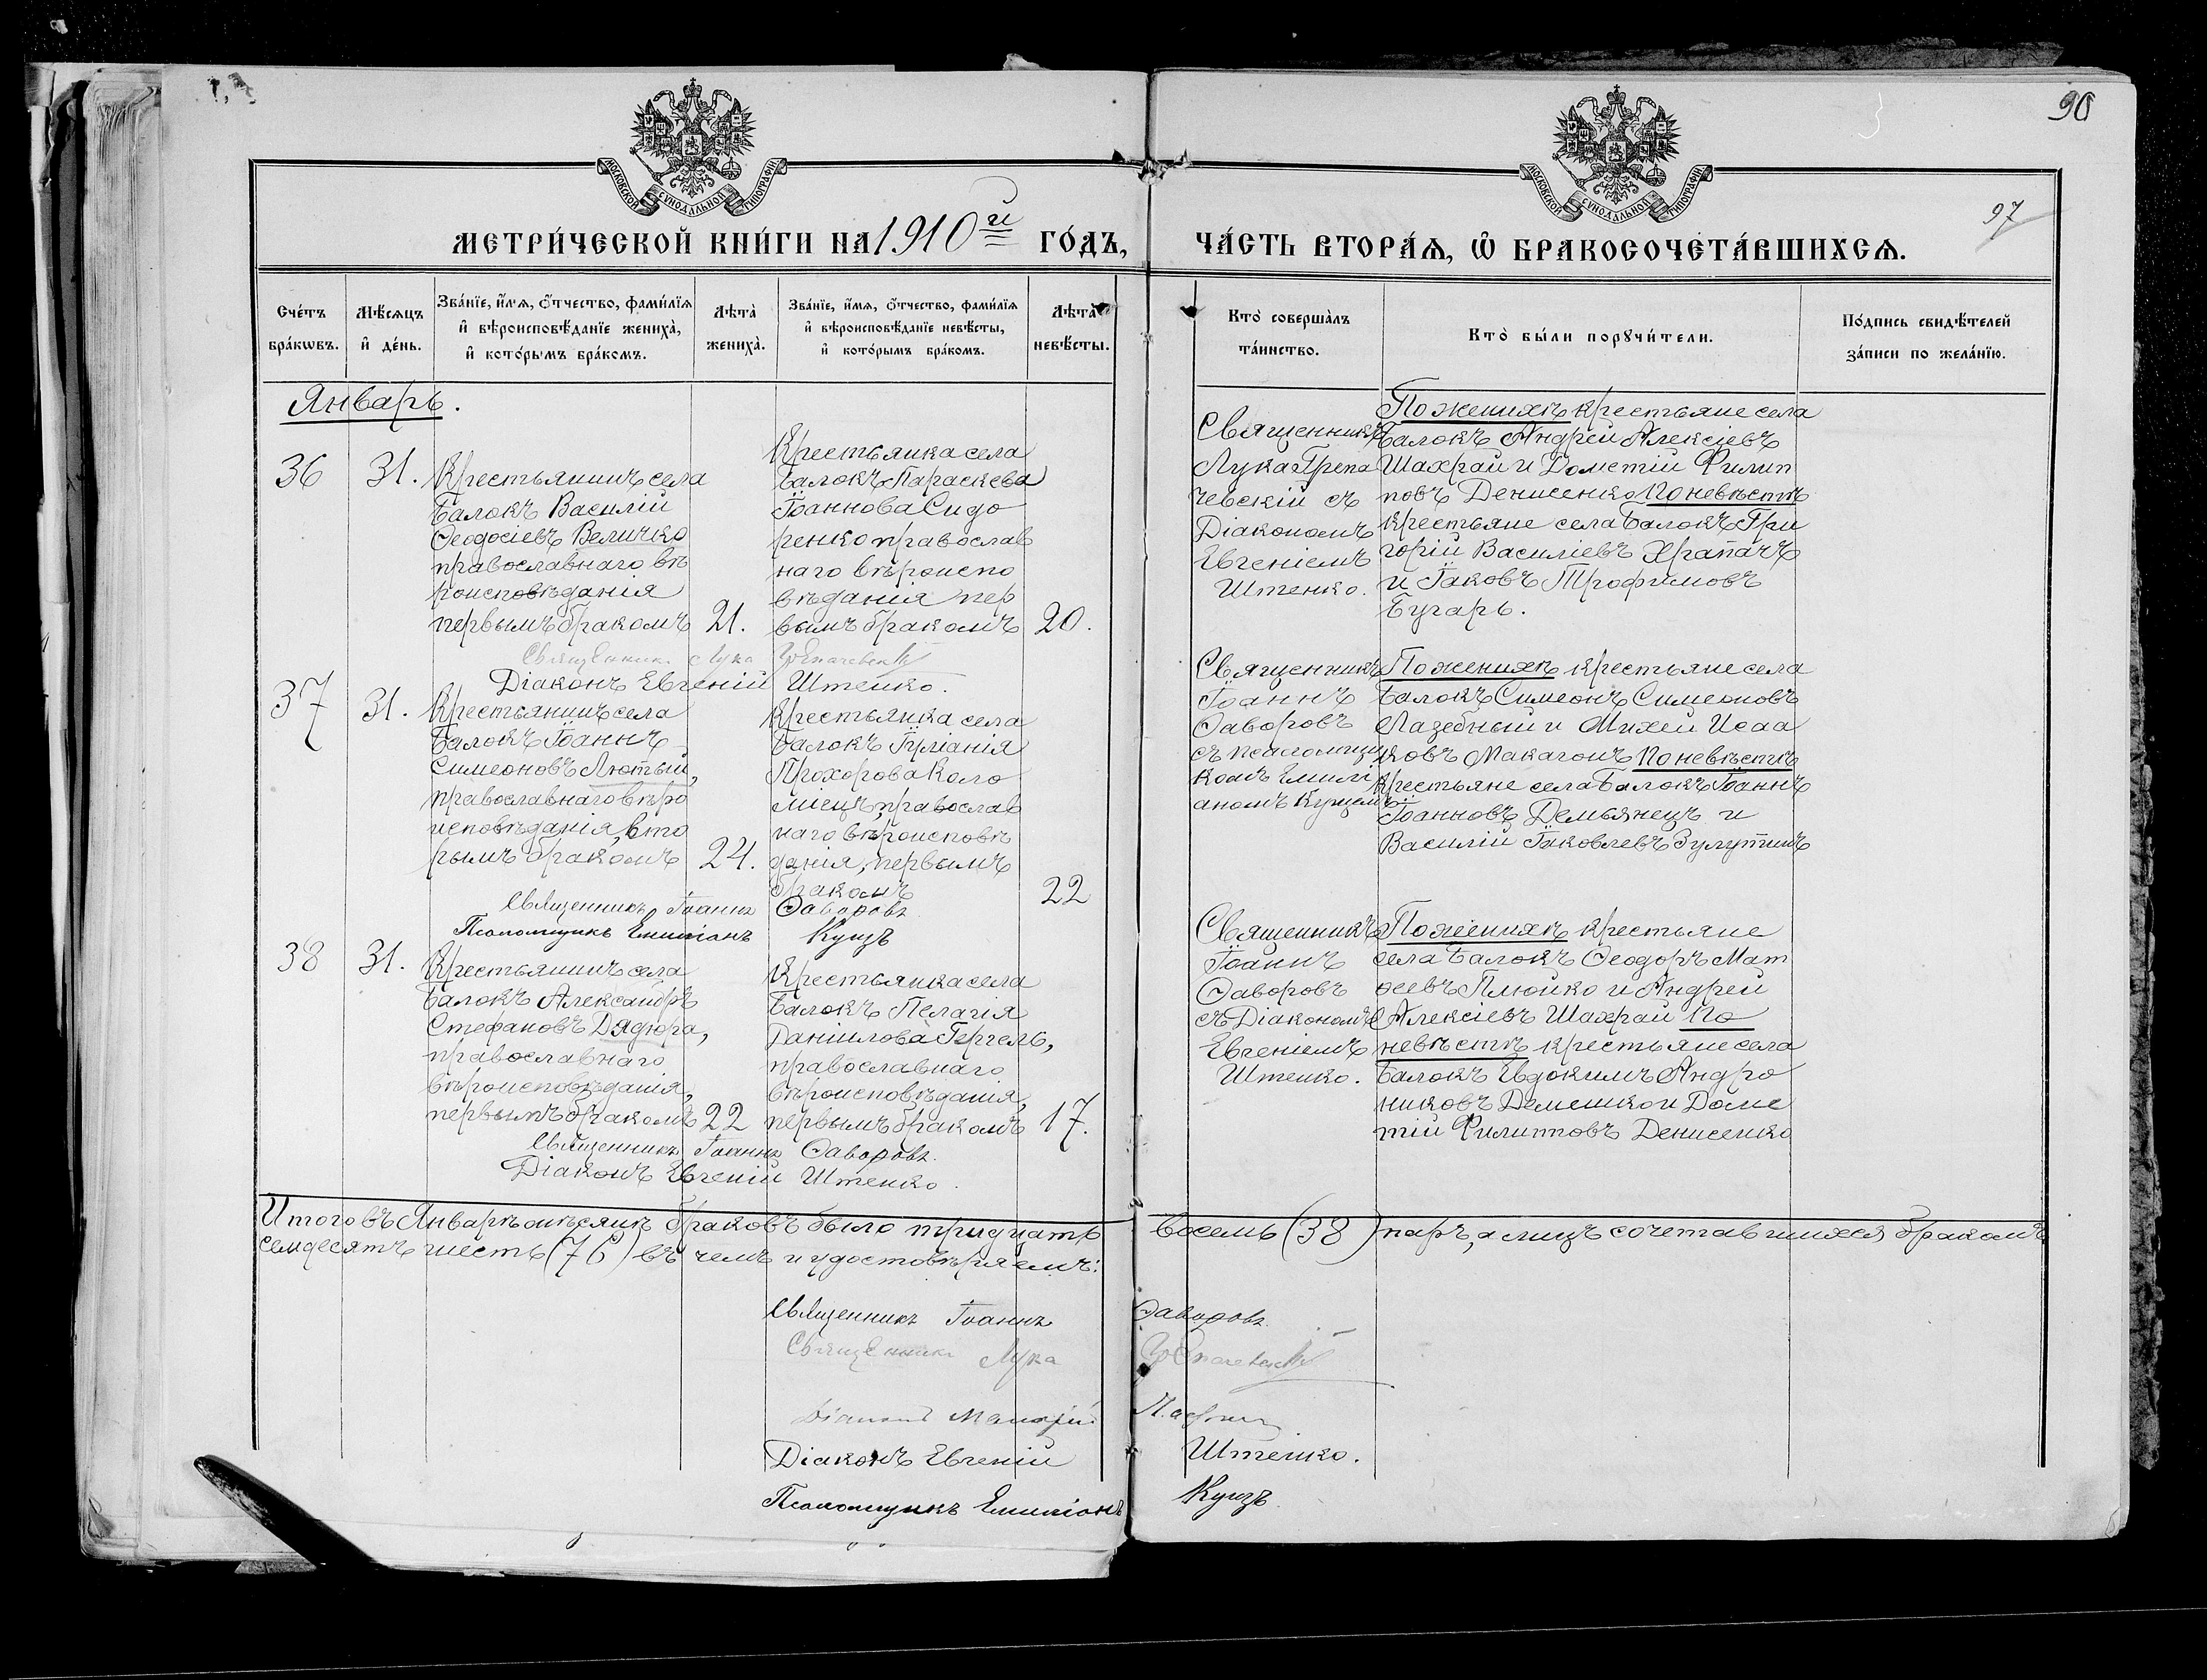 90
МОСКОВСКОЙ СѴНОДАЛЬНОЙ ТИПОГРАФІИ
МОСКОВСКОЙ СѴНОДАЛЬНОЙ ТИПОГРАФІИ
97
МЕТРИ́ЧЕСКОЙ КНИ́ГИ НА 1910 й ГО́ДЪ,
ЧА́СТЬ ВТОРА́Ѧ, Ѽ БРАКОСОЧЕТА́ВШИХСѦ.
Сче́тъ бра́кωвъ.
Мѣ́сяцъ и҆ де́нь.
Зва́нїе, и҆́мя, ѻ҆́тчество, фами́лїя и҆ вѣроисповѣ́данїе жениха̀, и҆ кото́рымъ бра́комъ.
Лѣта̀ жениха̀.
Зва́нїе, и҆́мя, ѻ҆́тчество, фами́лїя и҆ вѣроисповѣ́данїе невѣ́сты, и҆ кото́рымъ бра́комъ.
Лѣта̀ невѣ́сты.
Кто̀ соверша̀лъ та́инство.
Кто̀ бы́ли порꙋчи́тели.
По́дпись свидѣ́телей за́писи по жела́нїю.
Январь.
36
31.
Крестьянинъ села
Балокъ Василій
Ѳеодосіевъ Величко
православнаго вѣ
роисповѣданія
первымъ бракомъ
21.
Крестьянка села
Балокъ Параскева
Іоаннова Сидо
ренко православ
наго вѣроиспо
вѣданія пер
вымъ бракомъ
20.
Священникъ Лука
Діаконъ Евгеній Штепко.
Священникъ
Лука Трепа
чевскій съ
Діакономъ
Евгеніемъ
Штепко.
По женихѣ крестьяне села
Балокъ Андрей Алексіевъ
Шахрай и Дометій Филип
повъ Денисенко По невѣстѣ
крестьяне села Балокъ Гри
горій Василіевъ Храпачъ
и Іаковъ Трофимовъ
Бугарь.
37
31.
Крестьянинъ села
Балокъ Іоаннъ
Симеоновъ Лютый,
православнаго вѣро
исповѣданія, вто
рымъ бракомъ
24.
Крестьянка села
Балокъ Іуліанія
Прохорова Коло
міецъ, православ
наго вѣроисповѣ
данія, первымъ
бракомъ
22
Священникъ Іоаннъ Ѳаворовъ
Псаломщикъ Емиліанъ Куцъ
Священникъ
Іоаннъ
Ѳаворовъ
съ псаломщи
комъ Емилі
аномъ Куцемъ
По женихѣ крестьяне села
Балокъ Симеонъ Симеоновъ
Лазебный и Михей Исаа
ковъ Макагонъ По невѣстѣ
крестьяне села Балокъ Іоаннъ
Іоанновъ Демьянецъ и
Василій Іаковлевъ
38
31.
Крестьянинъ села
Балокъ Александръ
Стефановъ Дядюра,
православнаго
вѣроисповѣданія,
первымъ бракомъ
22
Крестьянка села
Балокъ Пелагія
Даніилова Гергель,
православнаго
вѣроисповѣданія,
первымъ бракомъ
17.
Священникъ Іоаннъ Ѳаворовъ.
Діаконъ Евгеній Штепко.
Священникъ
Іоаннъ
Ѳаворовъ
съ Діакономъ
Евгеніемъ
Штепко.
По женихѣ крестьяне
села Балокъ Ѳеодоръ Мат
ѳеевъ Плюйко и Андрей
Алексіевъ Шахрай По
невѣстѣ крестьяне села
Балокъ Евдокимъ Андро
никовъ Демешко и Доме
тій Филипповъ Денисенко
Итого въ Январѣ мѣсяцѣ браковъ было тридцать восемь (38) паръ, а лицъ сочетавшихся бракомъ
семдесятъ шесть (76) въ чемъ и удостовѣряемъ:
Священникъ Іоаннъ Ѳаворовъ.
Священникъ Лука
Діаконъ
Діаконъ Евгеній Штепко.
Псаломщикъ Емиліанъ Куцъ.